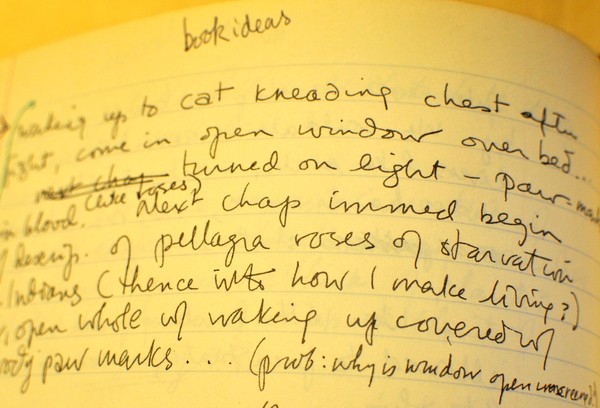 book ideas
waking up to cat kneading chest after
ight, come in open window over bed...
next chap turned on light – paw-ma
in blood. (like roses) Next chap immed begin
w/ Descrip. of pellagra roses of starvation
Indians (thence into how I make living?)
open whole w/ waking up covered w/
oody paw marks... (prob: why is window open unscreened?)